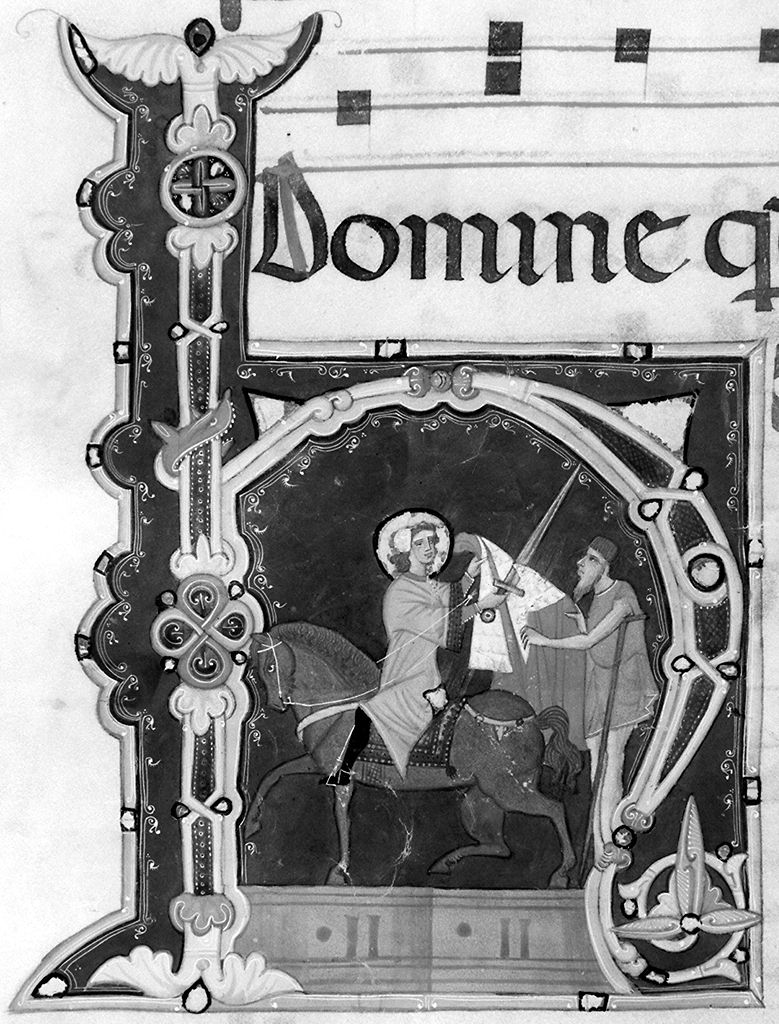 Domine q
H